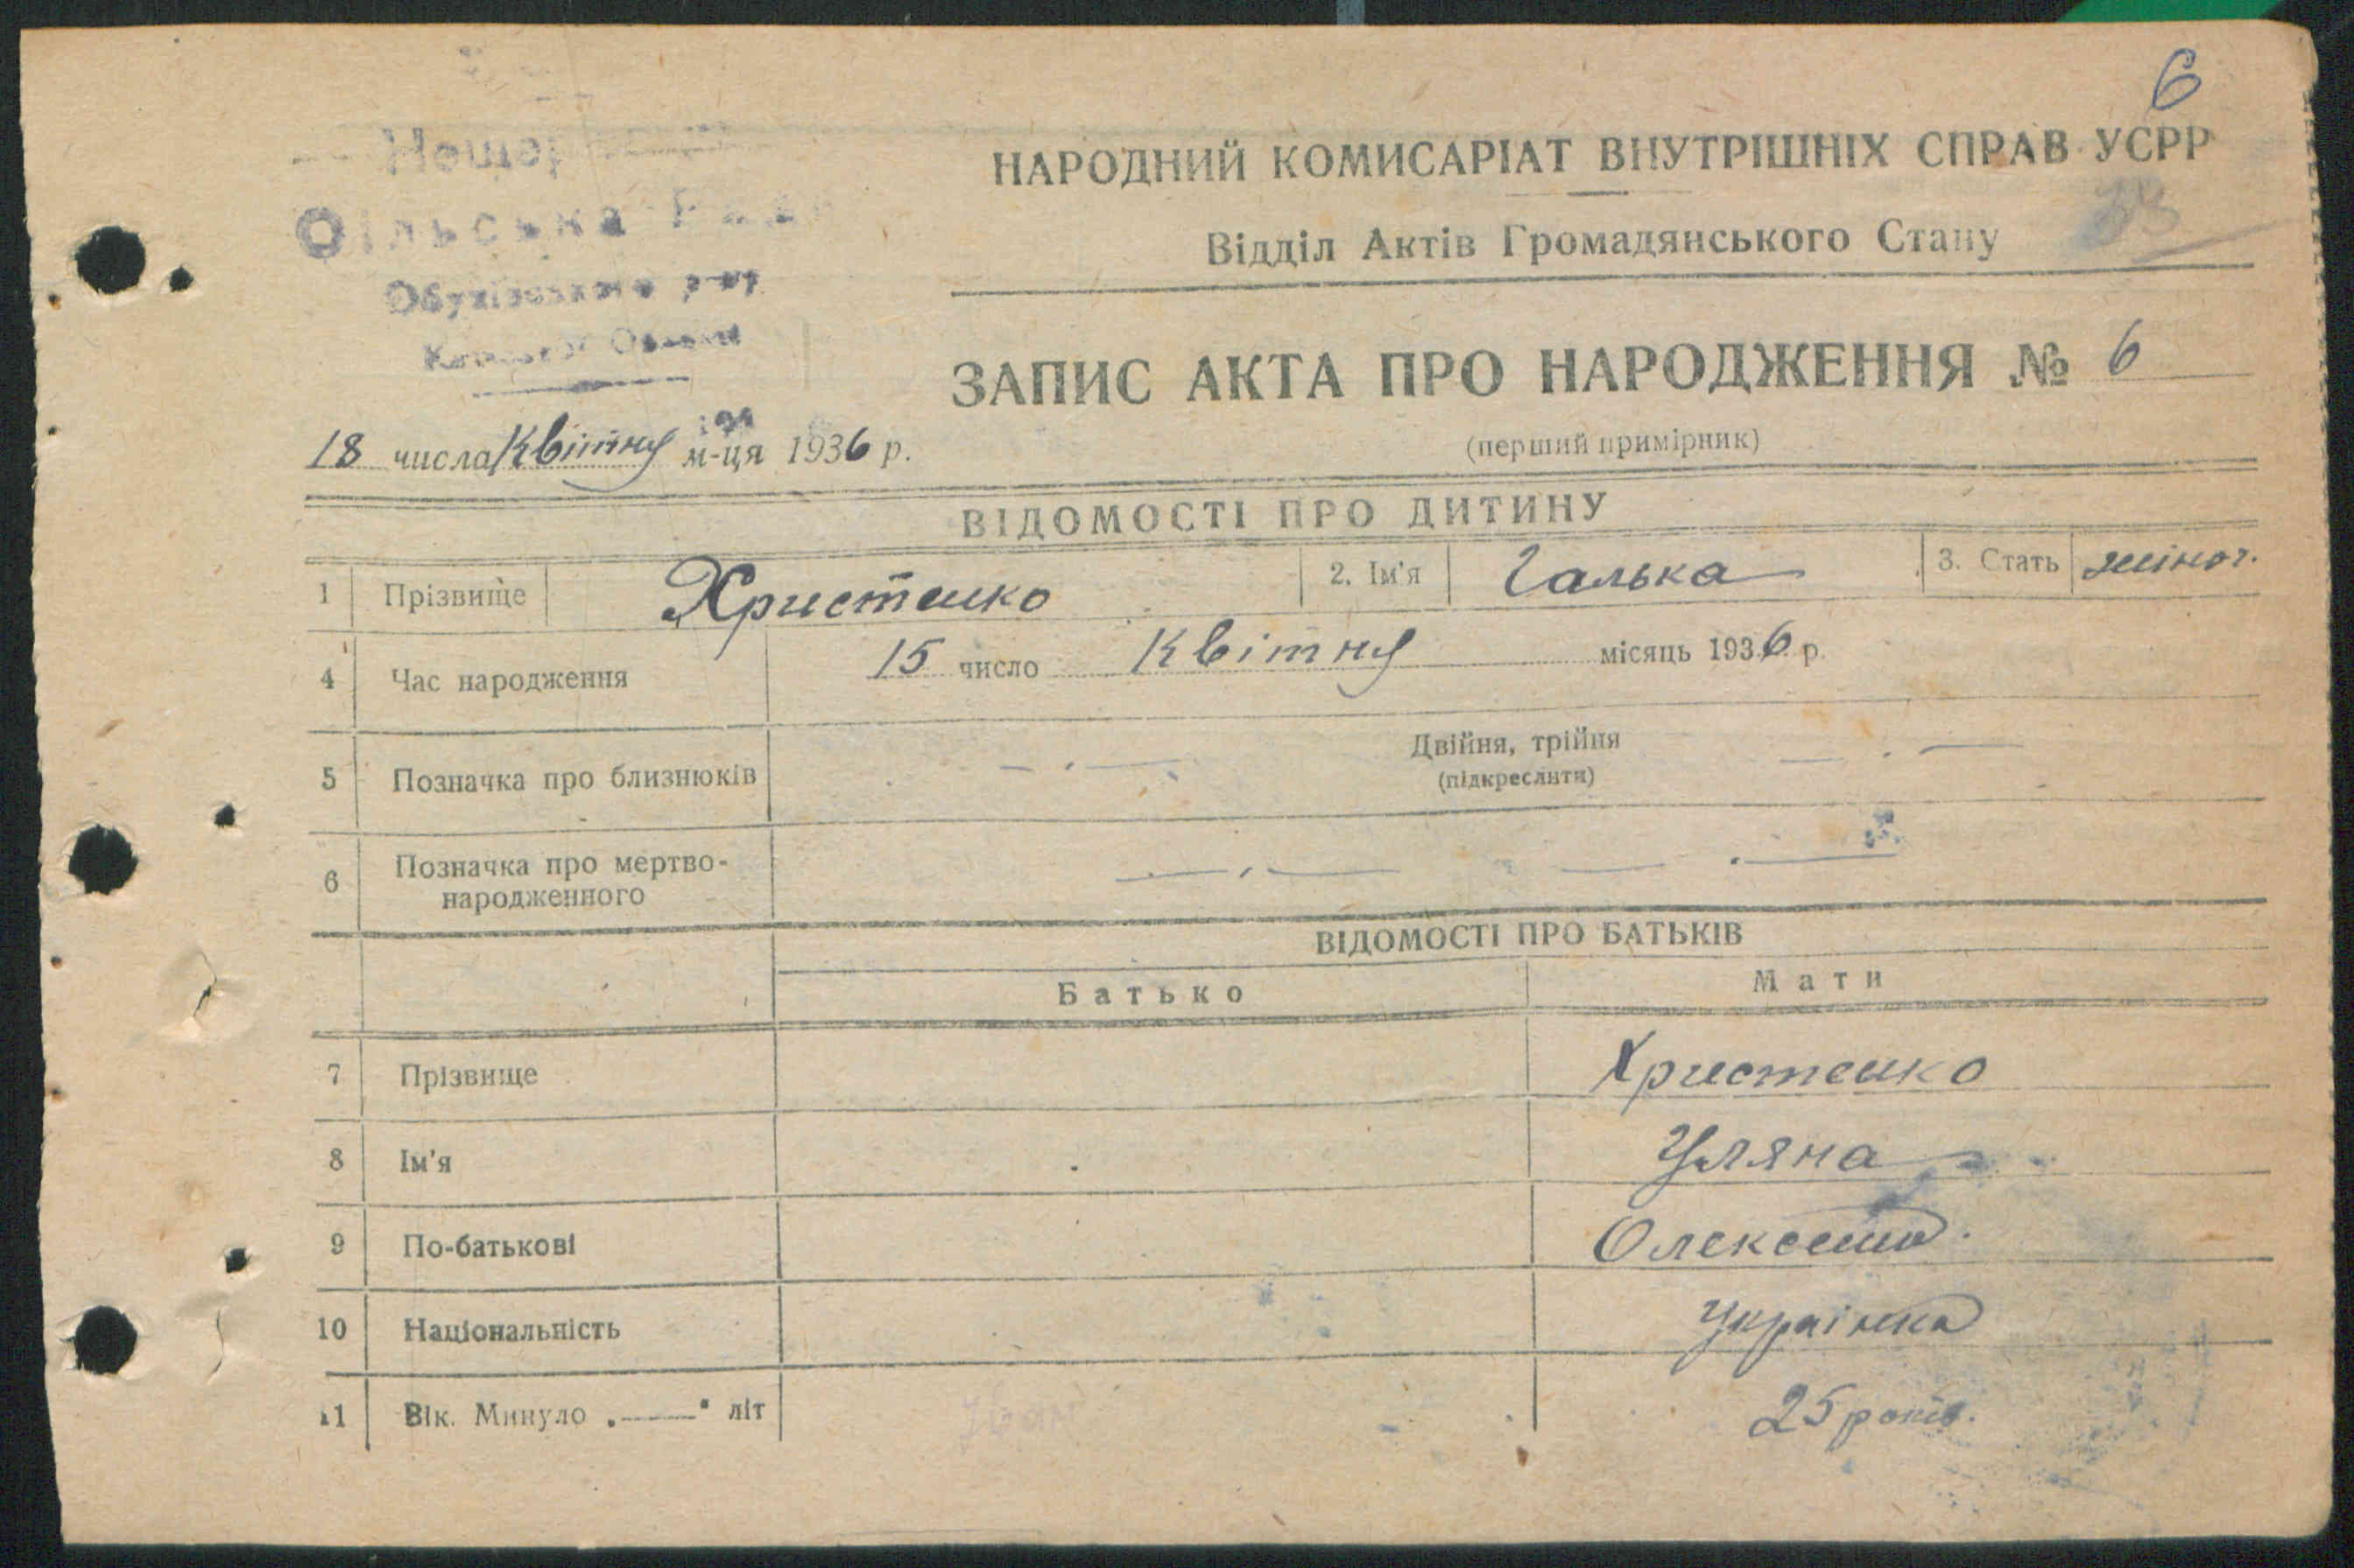 6
НАРОДНИЙ КОМИСАРІАТ ВНУТРІШНІХ СПРАВ УСРР
Відділ Актів Громадянського Стану
Обухівського р-ну
ЗАПИС АКТА ПРО НАРОДЖЕННЯ № 6
(перший примірник)
18 числа Квітня м-ця 1936 р.
ВІДОМОСТІ ПРО ДИТИНУ
1 Прізвище Христенко 2. Ім'я Галька 3. Стать жіноч.
4 Час народження 15 число Квітня місяць 1936 р.
5 Позначка про близнюків Двійня, трійня
(підкреслити)
6 Позначка про мертво-
народженного
ВІДОМОСТІ ПРО БАТЬКІВ
Батько Мати
7 Прізвище Христенко
8 Ім'я Уляна
9 По-батькові Олексеїв.
10 Національність Українка
11 Вік. Минуло „——" літ 25 років.